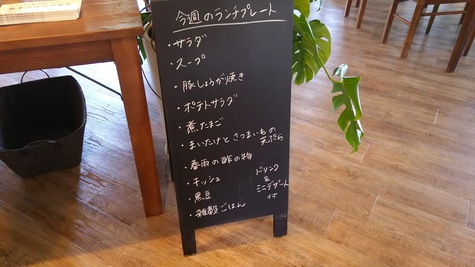 今週のランチプレート
・サラダ
・スープ
・豚しょうが焼き
・ポテトサラダ
・煮たまご
・まいたけとさつまいもの
天ぷら
・春雨の酢の物
・キッシュ
・黒豆
・雑穀ごはん
ドリンク
&
ミニデザート
付